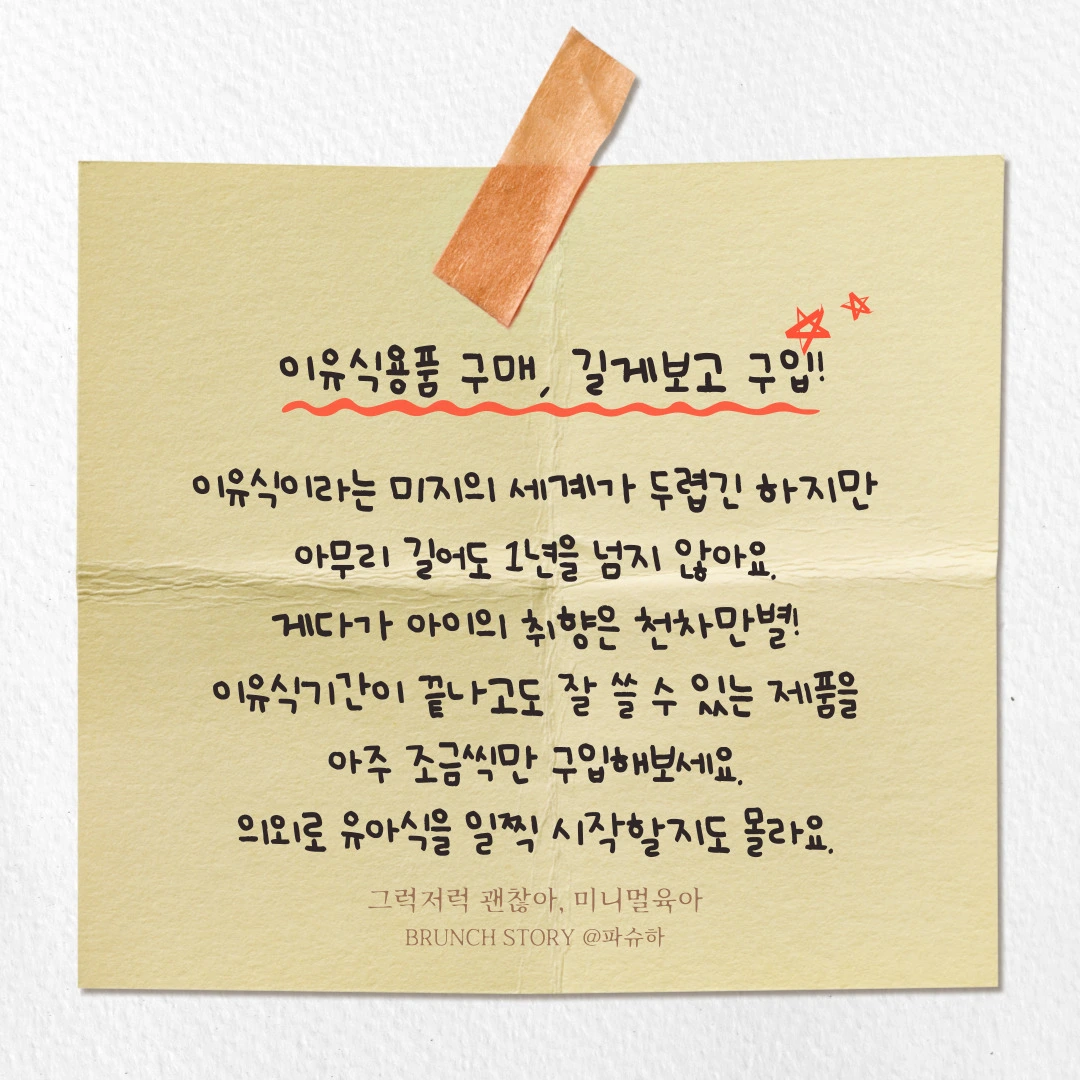 이유식용품 구매, 길게보고 구입!!
이유식이라는 미지의 세계가 두렵긴 하지만
아무리 길어도 1년을 넘지 않아요.
게다가 아이의 취향은 천차만별!
이유식기간이 끝나고도 잘 쓸 수 있는 제품을
아주 조금씩만 구입해보세요.
의외로 유아식을 일찍 시작할지도 몰라요.
그럭저럭 괜찮아, 미니멀육아
BRUNCH STORY @파슈하